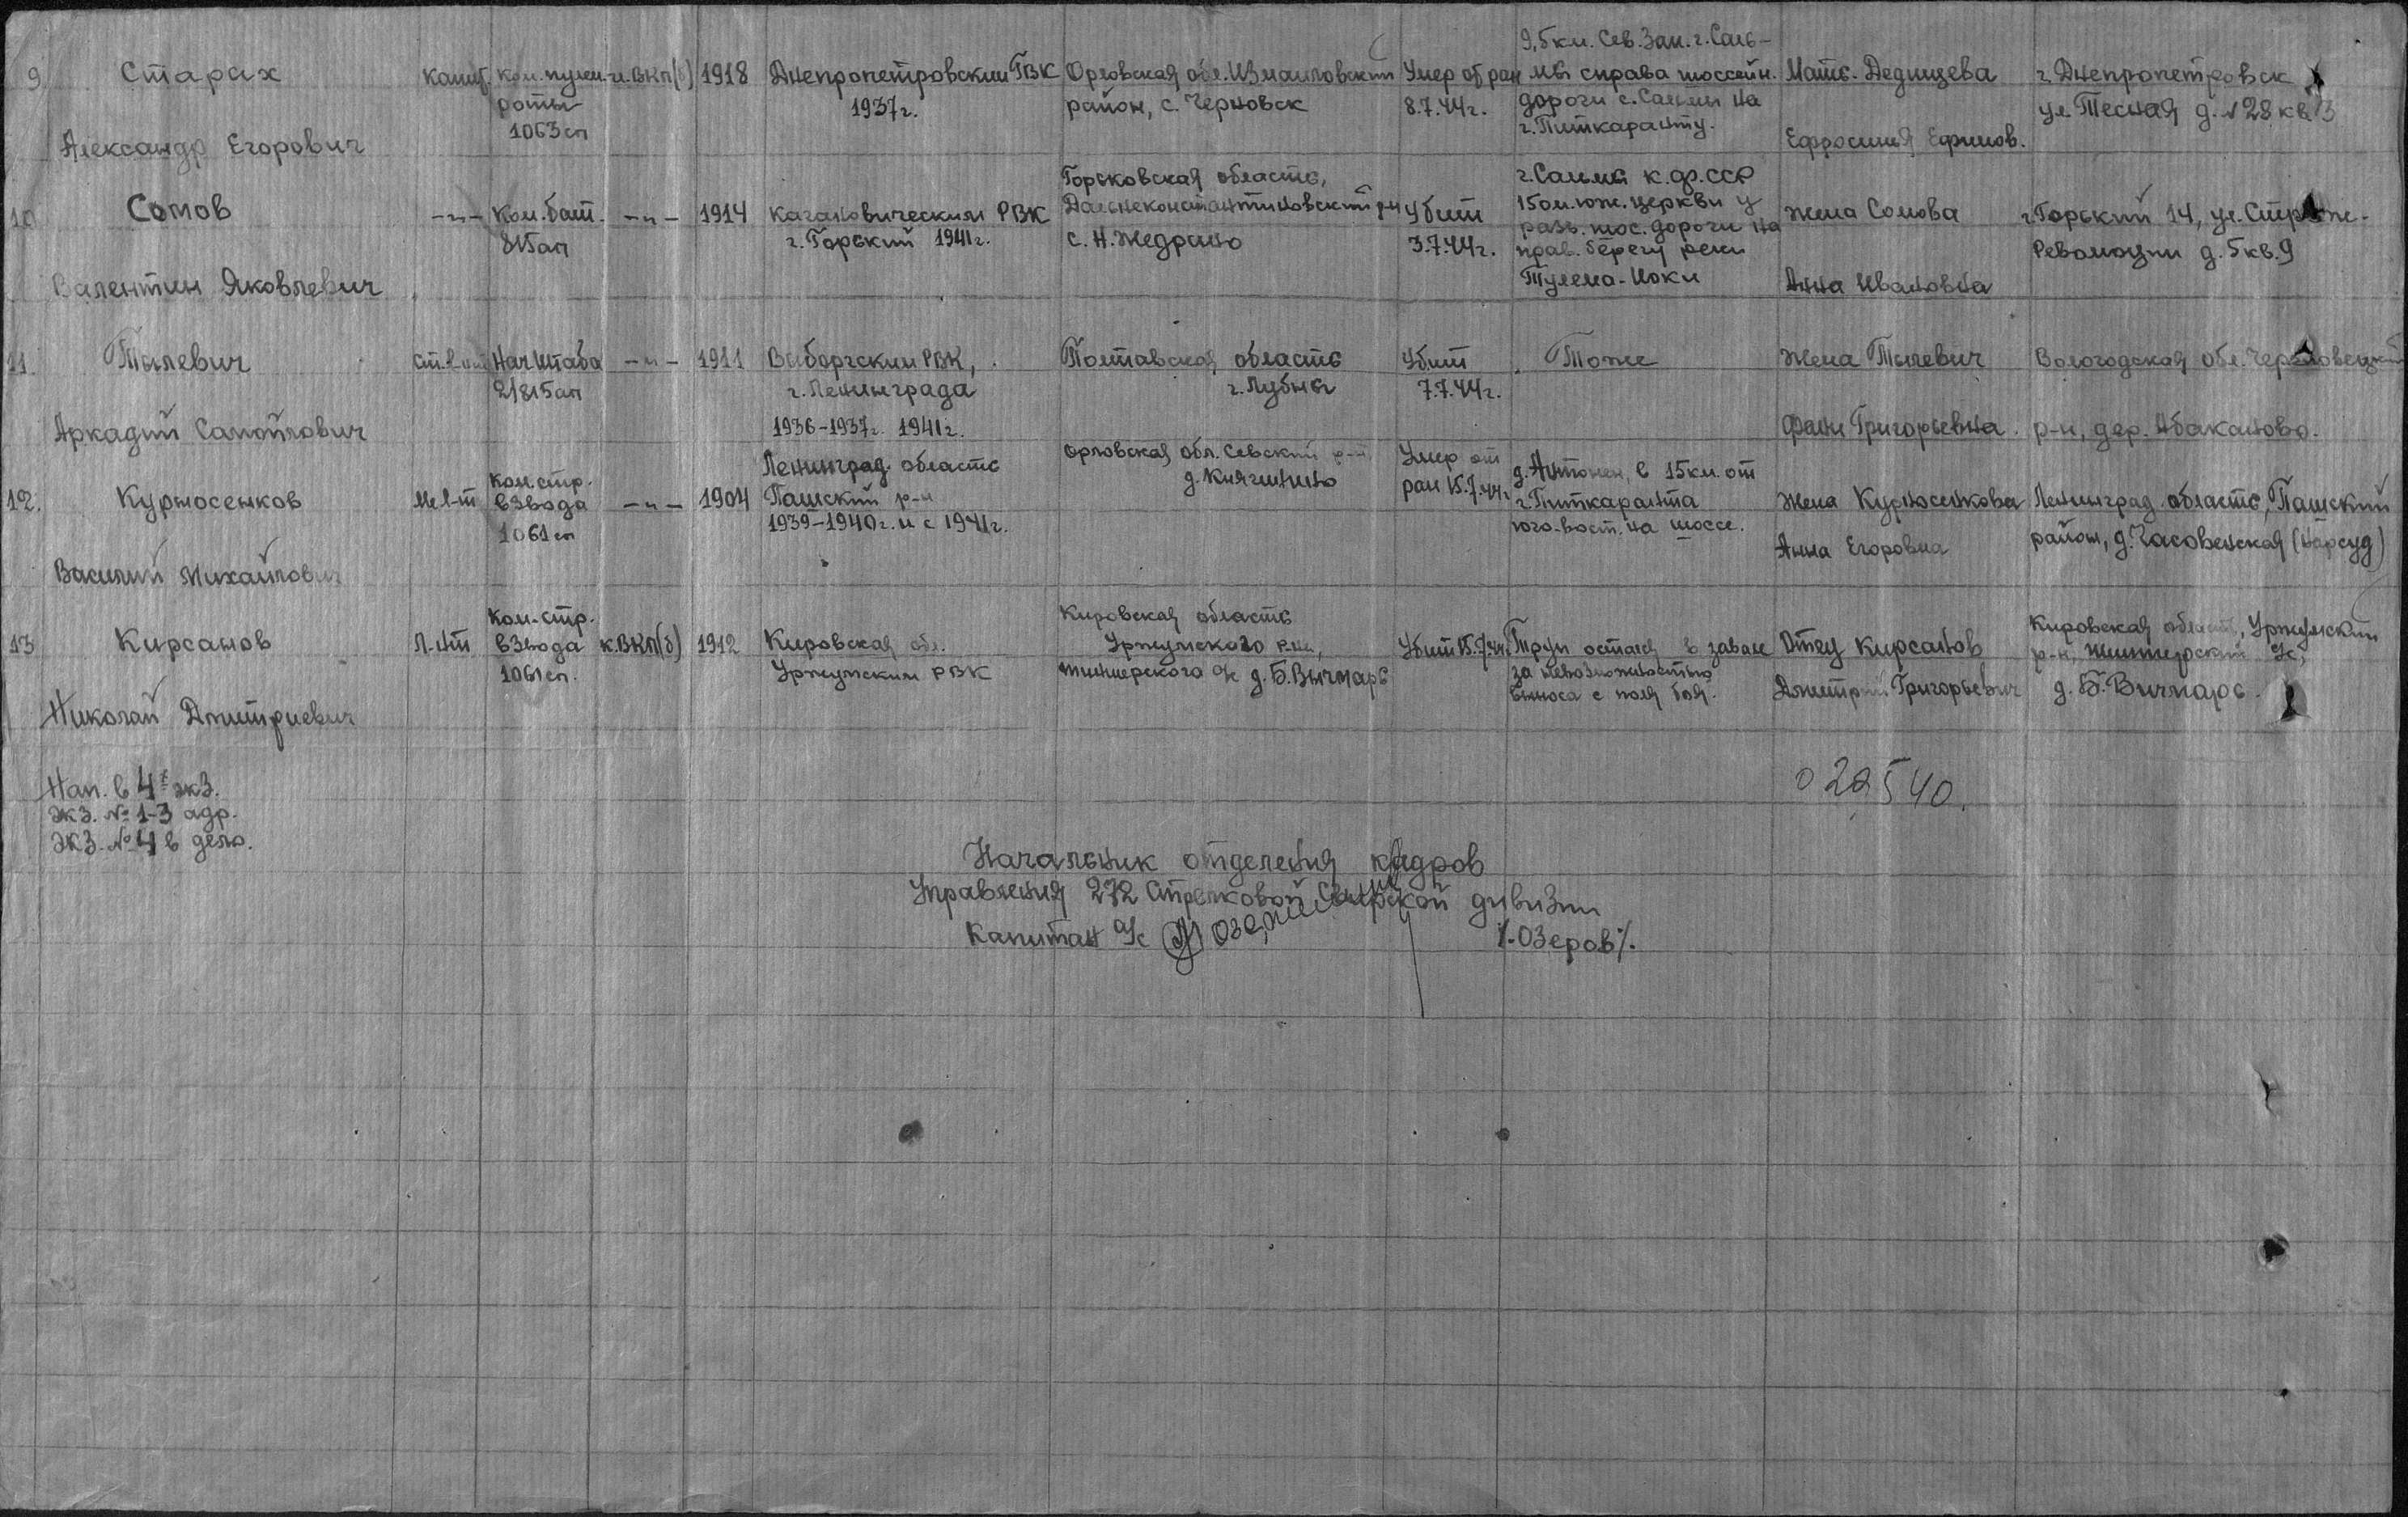 9. Старах
Александр Егорович
Капит.
Ком. пулем.
роты
1063 сп
чл. ВКП(б)
1918
Днепропетровский ГВК
1937г.
Орловская обл. Измаиловский
район, с. Черновск
Умер от ран
8.7.44г.
9,5 км. Сев. Зап. г. Саль-
мы справа шоссейн.
дороги с. Сальмы на
г. Питкаранту.
Мать. Дедищева
Ефросиния Ефимов.
г. Днепропетровск
ул. Тесная д. №28 кв. 3
10 Сомов
Валентин Яковлевич
-"-
Ком. бат.
815 ап
-"-
1914
Кагановическим РВК
г. Горький 1941г.
Горьковская область,
Дальнеконстантиновский р-н
с. Н. Жедрино
Убит
3.7.44г.
г. Сальма К.Ф.ССР
150м. юж. церкви у
разв. шос. дороги на
прав. берегу реки
Тулема-Иоки
Жена Сомова
Анна Ивановна
г. Горький 14, ул.
Революции д. 5 кв. 9
11. Тылевич
Аркадий Самойлович
ст. л-нт
Нач штаба
2/815 ап
-"-
1911
Выборгским РВК,
г. Ленинграда
1936-1937г. 1941г.
Полтавская область
г. Лубны
Убит
7.7.44г.
Тоже
Жена Тылевич
Фани Григорьевна
Вологодская обл. Череповецкий
р-н, дер. Абаканово.
12. Курносенков
Василий Михайлович
Мл. л-т
Ком стр.
взвода
1061 сп
-"-
1904
Ленинград. область
Пашский р-н
1939-1940г. и с 1941г.
Орловская обл. Севский р-н
д. Княгинино
Умер от
ран 15.7.44г.
д. Антонен, в 15 км. от
г. Питкаранта
юго-вост. на шоссе.
Жена Курносенкова
Анна Егоровна
Ленинград. область, Пашский
район, д. Часовенская (Нарсуд)
13 Кирсанов
Николай Дмитриевич
Л-нт
Ком. стр.
взвода
1061 сп.
к. ВКП(б)
1912
Кировская обл.
Уржумским РВК
Кировская область
Уржумского р-на,
с/с д. Б. Вычмарь
Убит 15.7.44г.
Труп остался в завале
за невозможностью
выноса с поля боя.
Отец Кирсанов
Дмитрий Григорьевич
Кировская область, Уржумский
р-н, с/с,
д. Б. Вичмарь.
Нап. в 4х экз.
Экз. № 1-3 адр.
Экз. № 4 в дело.
022540.
Начальник отделения кадров
Управления 272 Стрелковой Свирской дивизии
Капитан а/с
/.Озеров/.